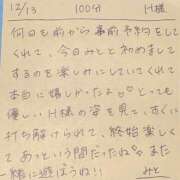 12/13 100分 H様
何日も前から事前予約をして
くれて、今日みとと初めまして
するのを楽しみにしていてくれて
本当に嬉しかったよ♡とっても
優しいH様の姿を見て、すぐに
打ち解けられて、終始楽しく
てあっという間だったね。また
一緒に遊ぼうね!! みと